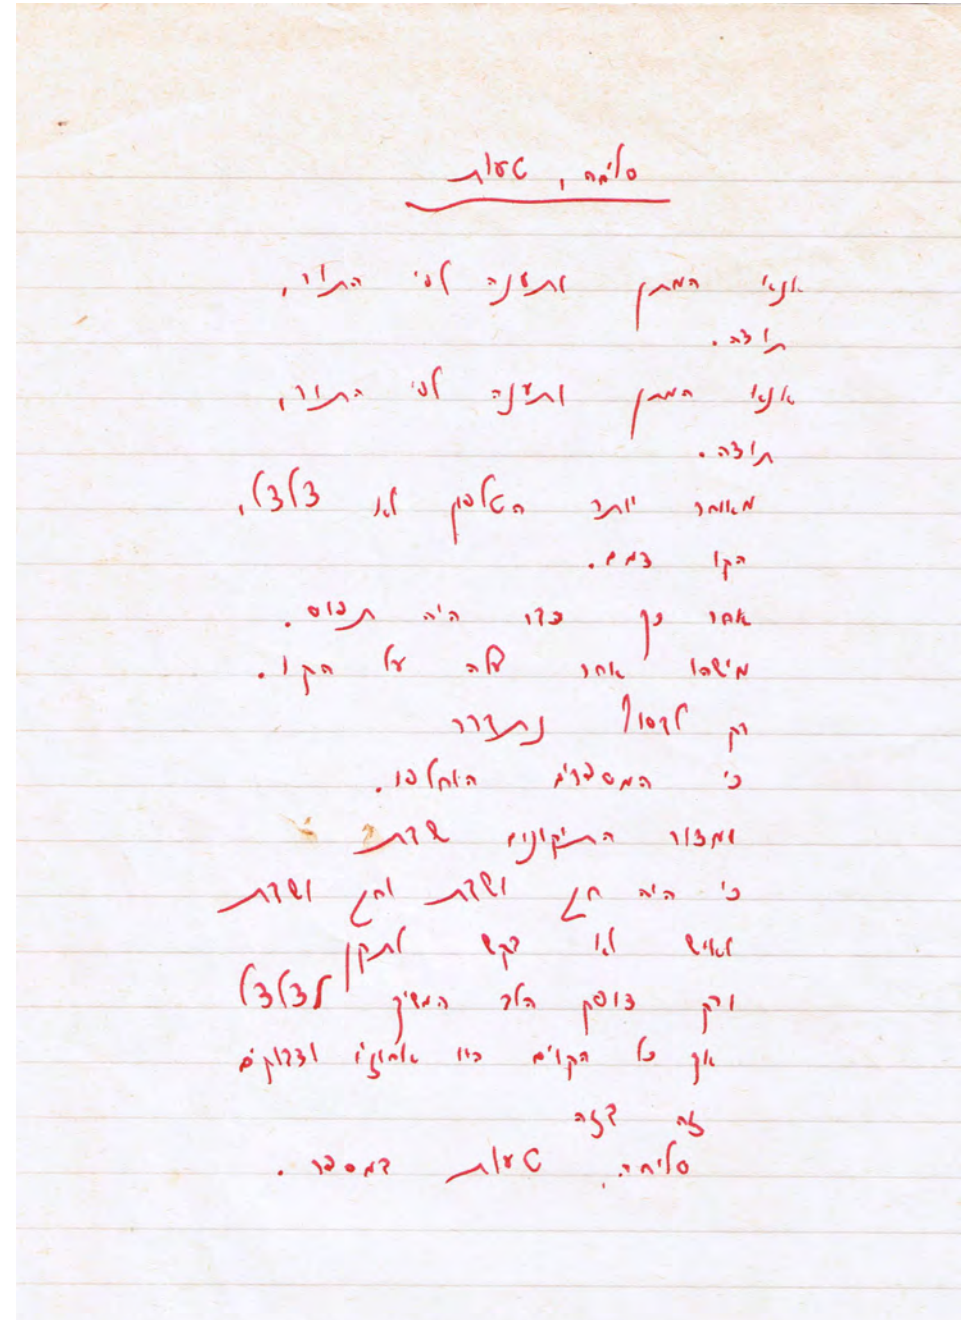 סליחה, טעות
אנא המתן ותענה לפי התור,
תודה.
אנא המתן ותענה לפי התור,
תודה.
מאוחר יותר הטלפון לא צלצל,
הקו דמם.
אחר כך כבר היה תפוס.
מישהו אחר עלה על הקו.
רק לבסוף נתברר
כי המספרים הוחלפו.
ומדור התיקונים שבת
כי היה חג ושבת וחג ושבת
ואיש לא בקש לתקן
ורק דופק הלב המשיך לצלצל
אך כל הקוים היו אחוזים ודבוקים
זה בזה
סליחה, טעות במספר.